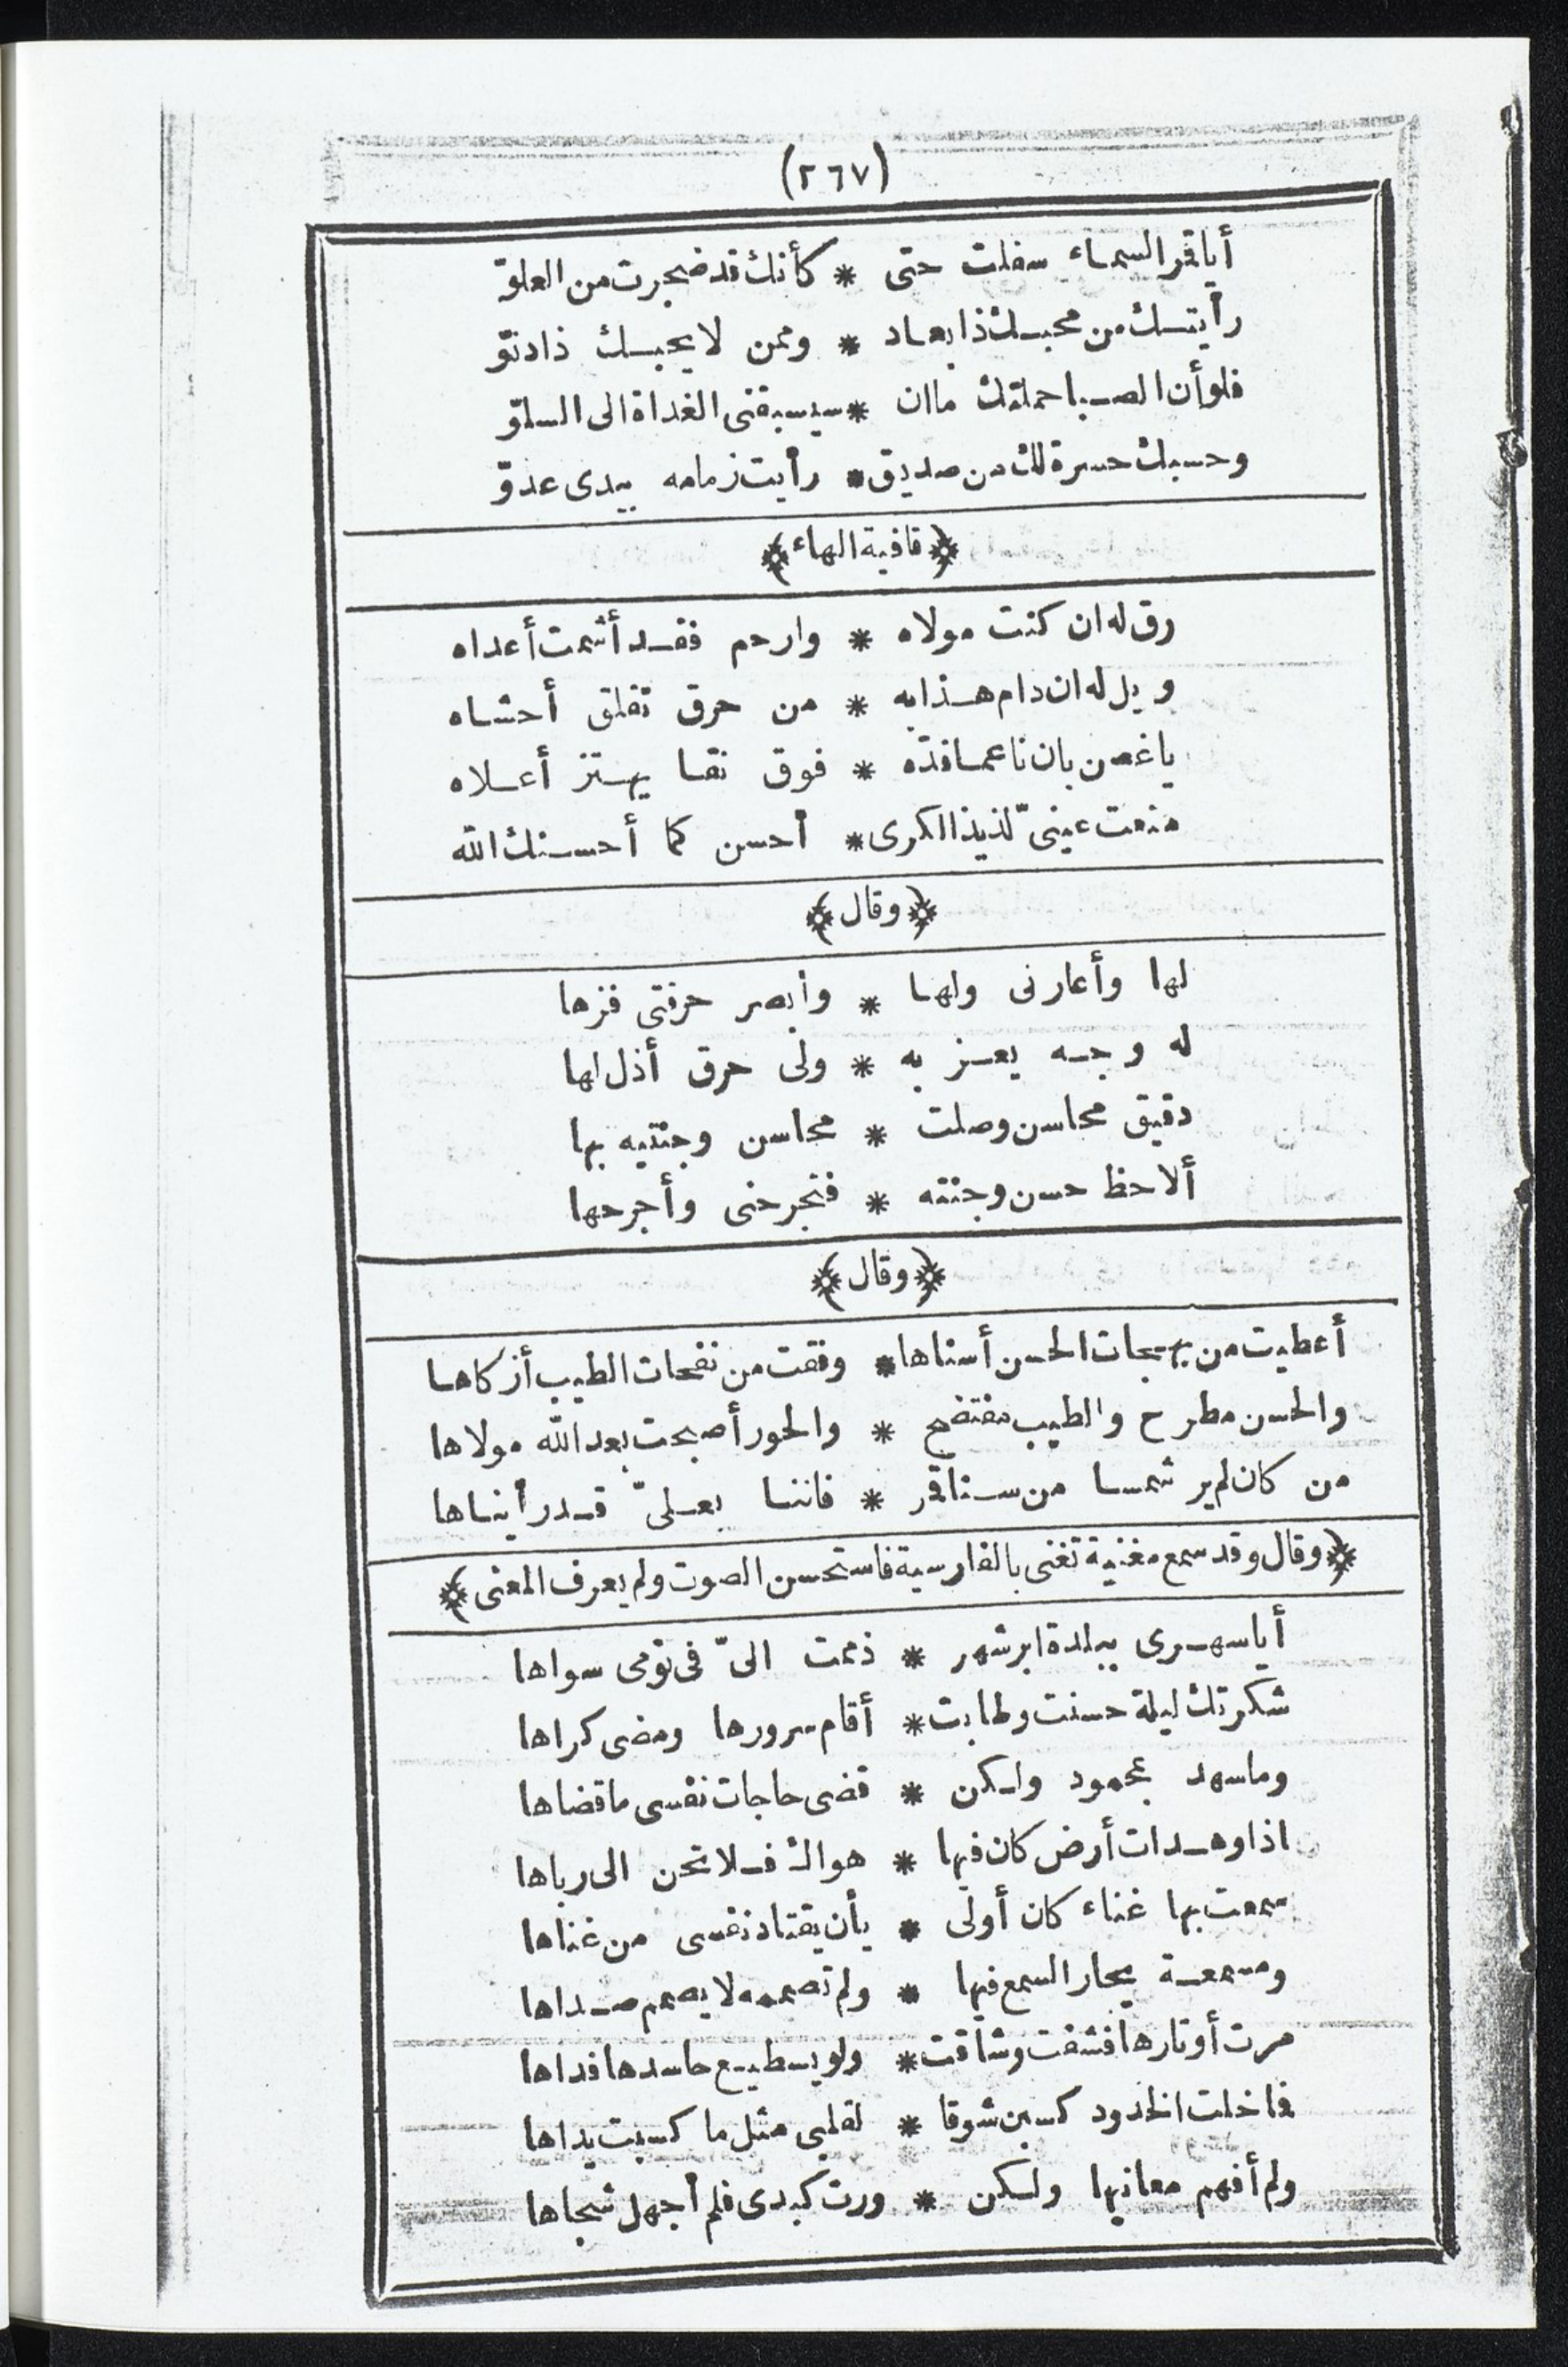 (٢٦٧)
أياقمر السماء سفلت حتى * كأنك قد ضجرت من العلوّ
رأيتك من محبك ذا بعاد * وممن لا يحبك ذا دنوّ
فلو أن الصبا حملتك ما ان * سيسبقنى الغداة الى السلوّ
وحسبك حسرة لك من صديق * رأيت زمامه بيدى عدوّ
﴿قافية الهاء﴾
رق له ان كنت مولاه * وارحم فقد أشمت أعداه
ويل له ان دام هذا به * من حرق تقلق أحشاه
يا غصن بان ناعما قدّه * فوق نقا يهتز أعلاه
منعت عينىّ لذيذ الكرى * أحسن كما أحسنك الله
﴿وقال﴾
لها وأعارنى ولها * وأبصر حرفتى فزها
له وجه يعز به * ولى حرق أذل لها
دقيق محاسن وصلت * محاسن وجنتيه بها
ألاحظ حسن وجنته * فتجرحنى وأجرحها
﴿وقال﴾
أعطيت من بهجات الحسن أسناها * وفقت من نفحات الطيب أزكاها
والحسن مطرح والطيب مفتضح * والحور أصبحت بعد الله مولاها
من كان لم ير شمسا من سنا قمر * فاننا بعلىّ قد رأيناها
﴿وقال وقد سمع مغنية تغنى بالفارسية فاستحسن الصوت ولم يعرف المعنى﴾
أيا سهرى ببلدة ابرشهر * ذممت الىّ فى نومى سواها
شكرتك ليلة حسنت وطابت * أقام سرورها ومضى كراها
وما سهد بمحمود ولكن * قضى حاجات نفسى ما قضاها
اذا وهدات أرض كان فيها * هواك فلا تحن الى رباها
سمعت بها غناء كان أولى * بأن يقتاد نفسى من غناها
ومسمعة يحار السمع فيها * ولم تصممه لا يصمم صداها
مرت أوتارها فشفت وشاقت * ولو يسطيع حاسدها فداها
فا خلت الخدود كسبن شوقا * لقلبى مثل ما كسبت يداها
ولم أفهم معانيها ولكن * ورت كبدى فلم أجهل شجاها